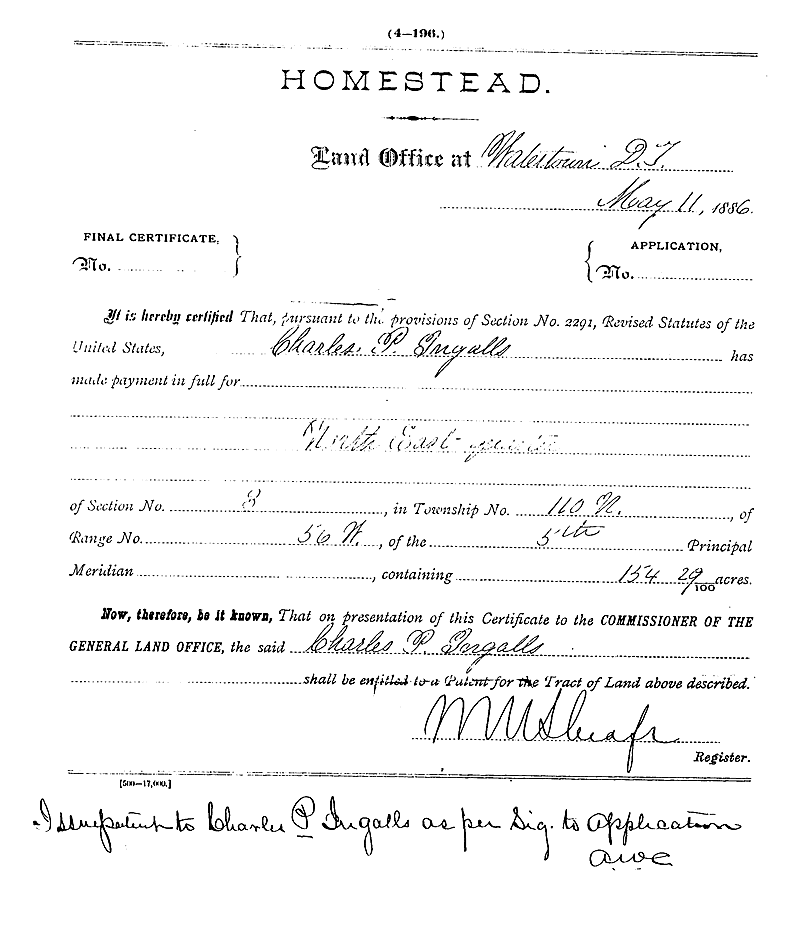 (4—196.)
HOMESTEAD.
Land Office at Watertown D.T.
May 11, 1886.
FINAL CERTIFICATE, No.
APPLICATION, No.
It is hereby certified That, pursuant to the provisions of Section No. 2291, Revised Statutes of the
United States, Charles P. Ingalls has
made payment in full for
North East quarter
of Section No. 3, in Township No. 110 N., of
Range No. 56 W., of the 5th Principal
Meridian, containing 154 29/100 acres.
Now, therefore, be it known, That on presentation of this Certificate to the COMMISSIONER OF THE
GENERAL LAND OFFICE, the said Charles P. Ingalls
shall be entitled to a Patent for the Tract of Land above described.
Register.
[500—17,000.]
Issue patent to Charles P Ingalls as per Sig. to Application